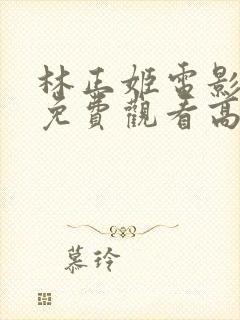 林正姬電影
免費觀看高
慕玲